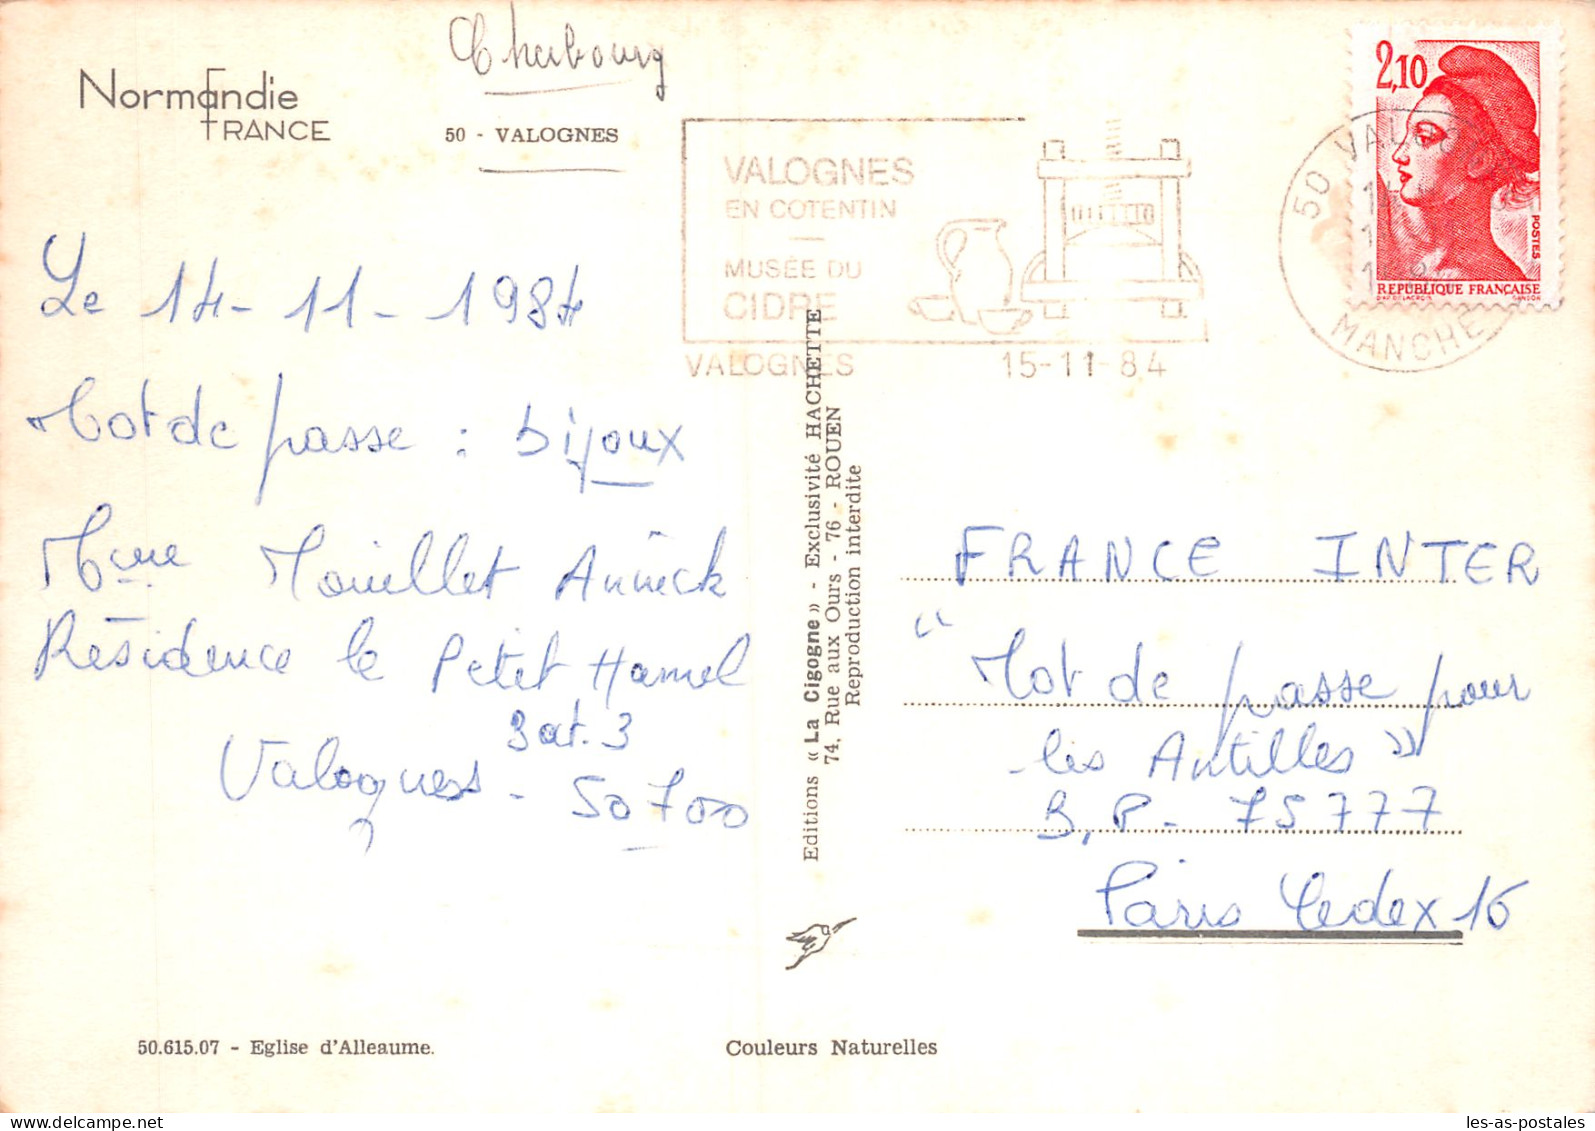 Cherbourg
Normandie
FRANCE
50 - VALOGNES
2,10
POSTES
REPUBLIQUE FRANÇAISE
50 VALOG
MANCHE
VALOGNES
EN COTENTIN
MUSÉE DU
CIDRE
VALOGNES 15-11-84
Le 14-11-1984
Mot de passe : bijoux
Mme Mouillet Annick
Résidence le Petit Hamel
Bat. 3
Valognes - 50700
Editions « La Cigogne » - Exclusivité HACHETTE
74, Rue aux Ours - 76 - ROUEN
Reproduction interdite
FRANCE INTER
“Mot de passe pour
les Antilles”
B.P. 75777
Paris Cedex 16
50.615.07 - Eglise d'Alleaume.
Couleurs Naturelles
les-as-postales